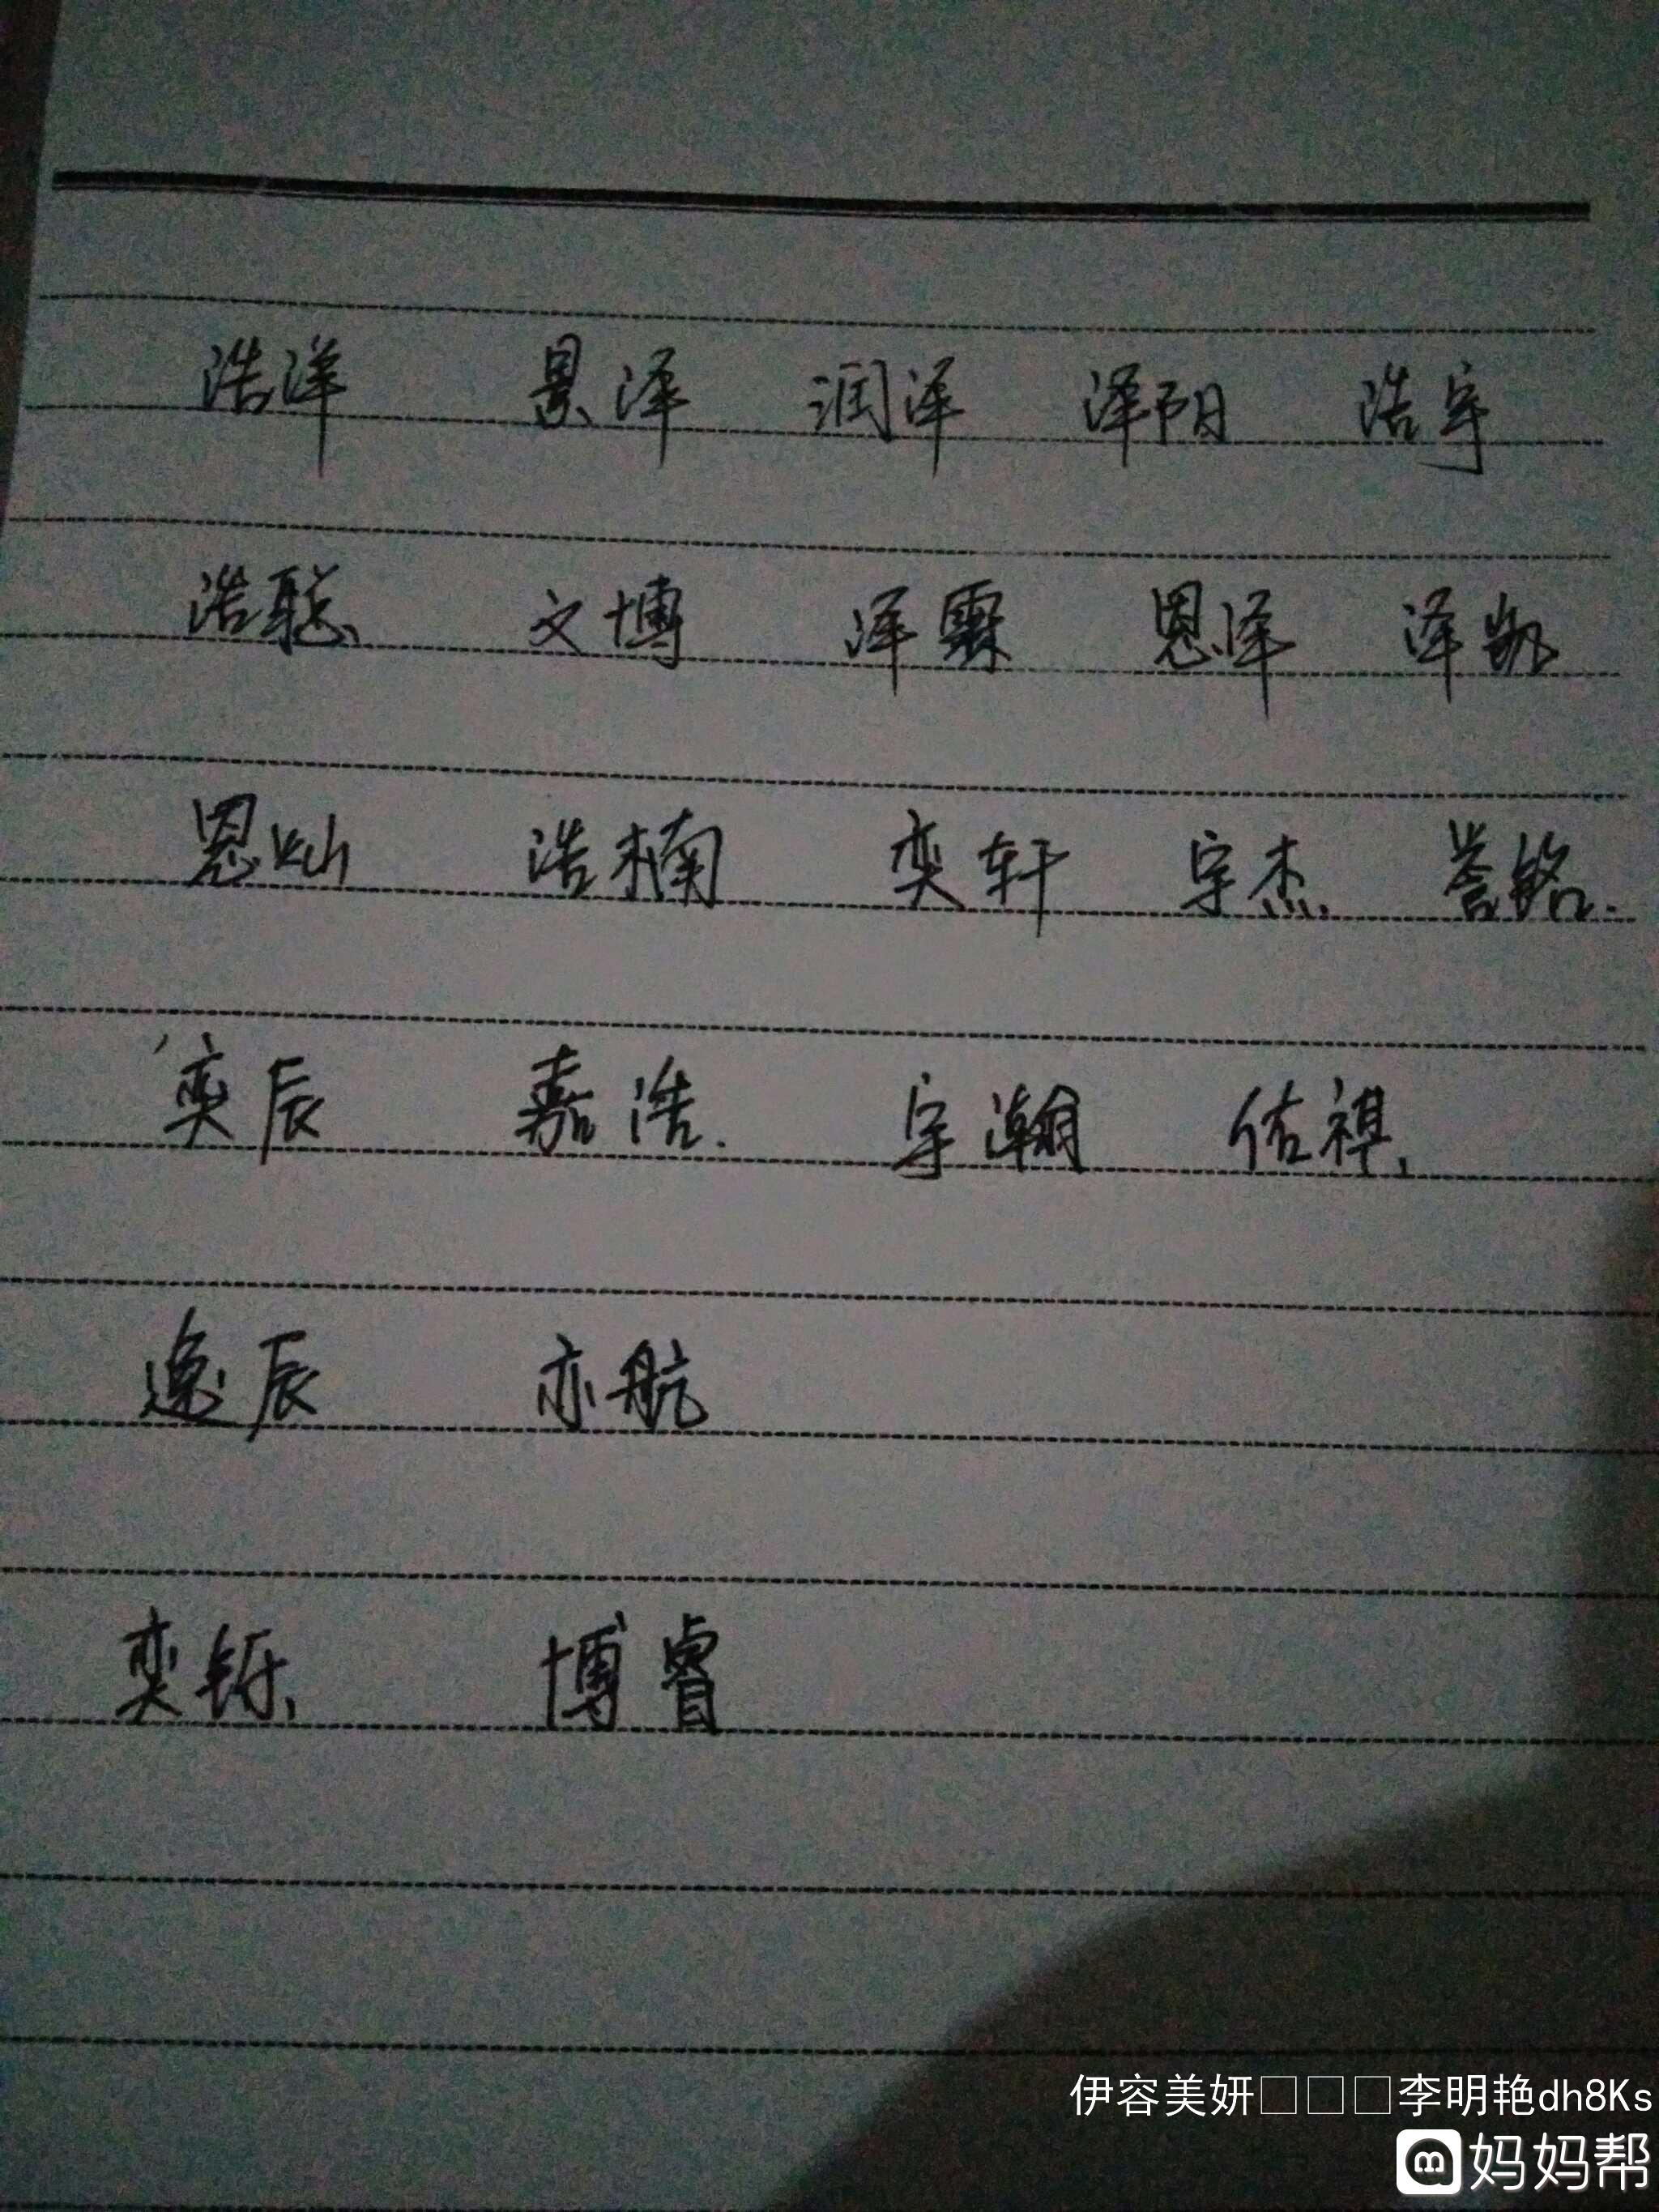 浩洋 景泽 润泽 泽阳 浩宇
浩聪、 文博 泽霖 恩泽 泽凯
恩灿 浩楠 奕轩 宇杰. 誉铭.
奕辰 嘉浩. 宇瀚 佑祺.
逸辰 亦航
奕铄、 博睿
伊容美妍□□□李明艳dh8Ks
妈妈帮